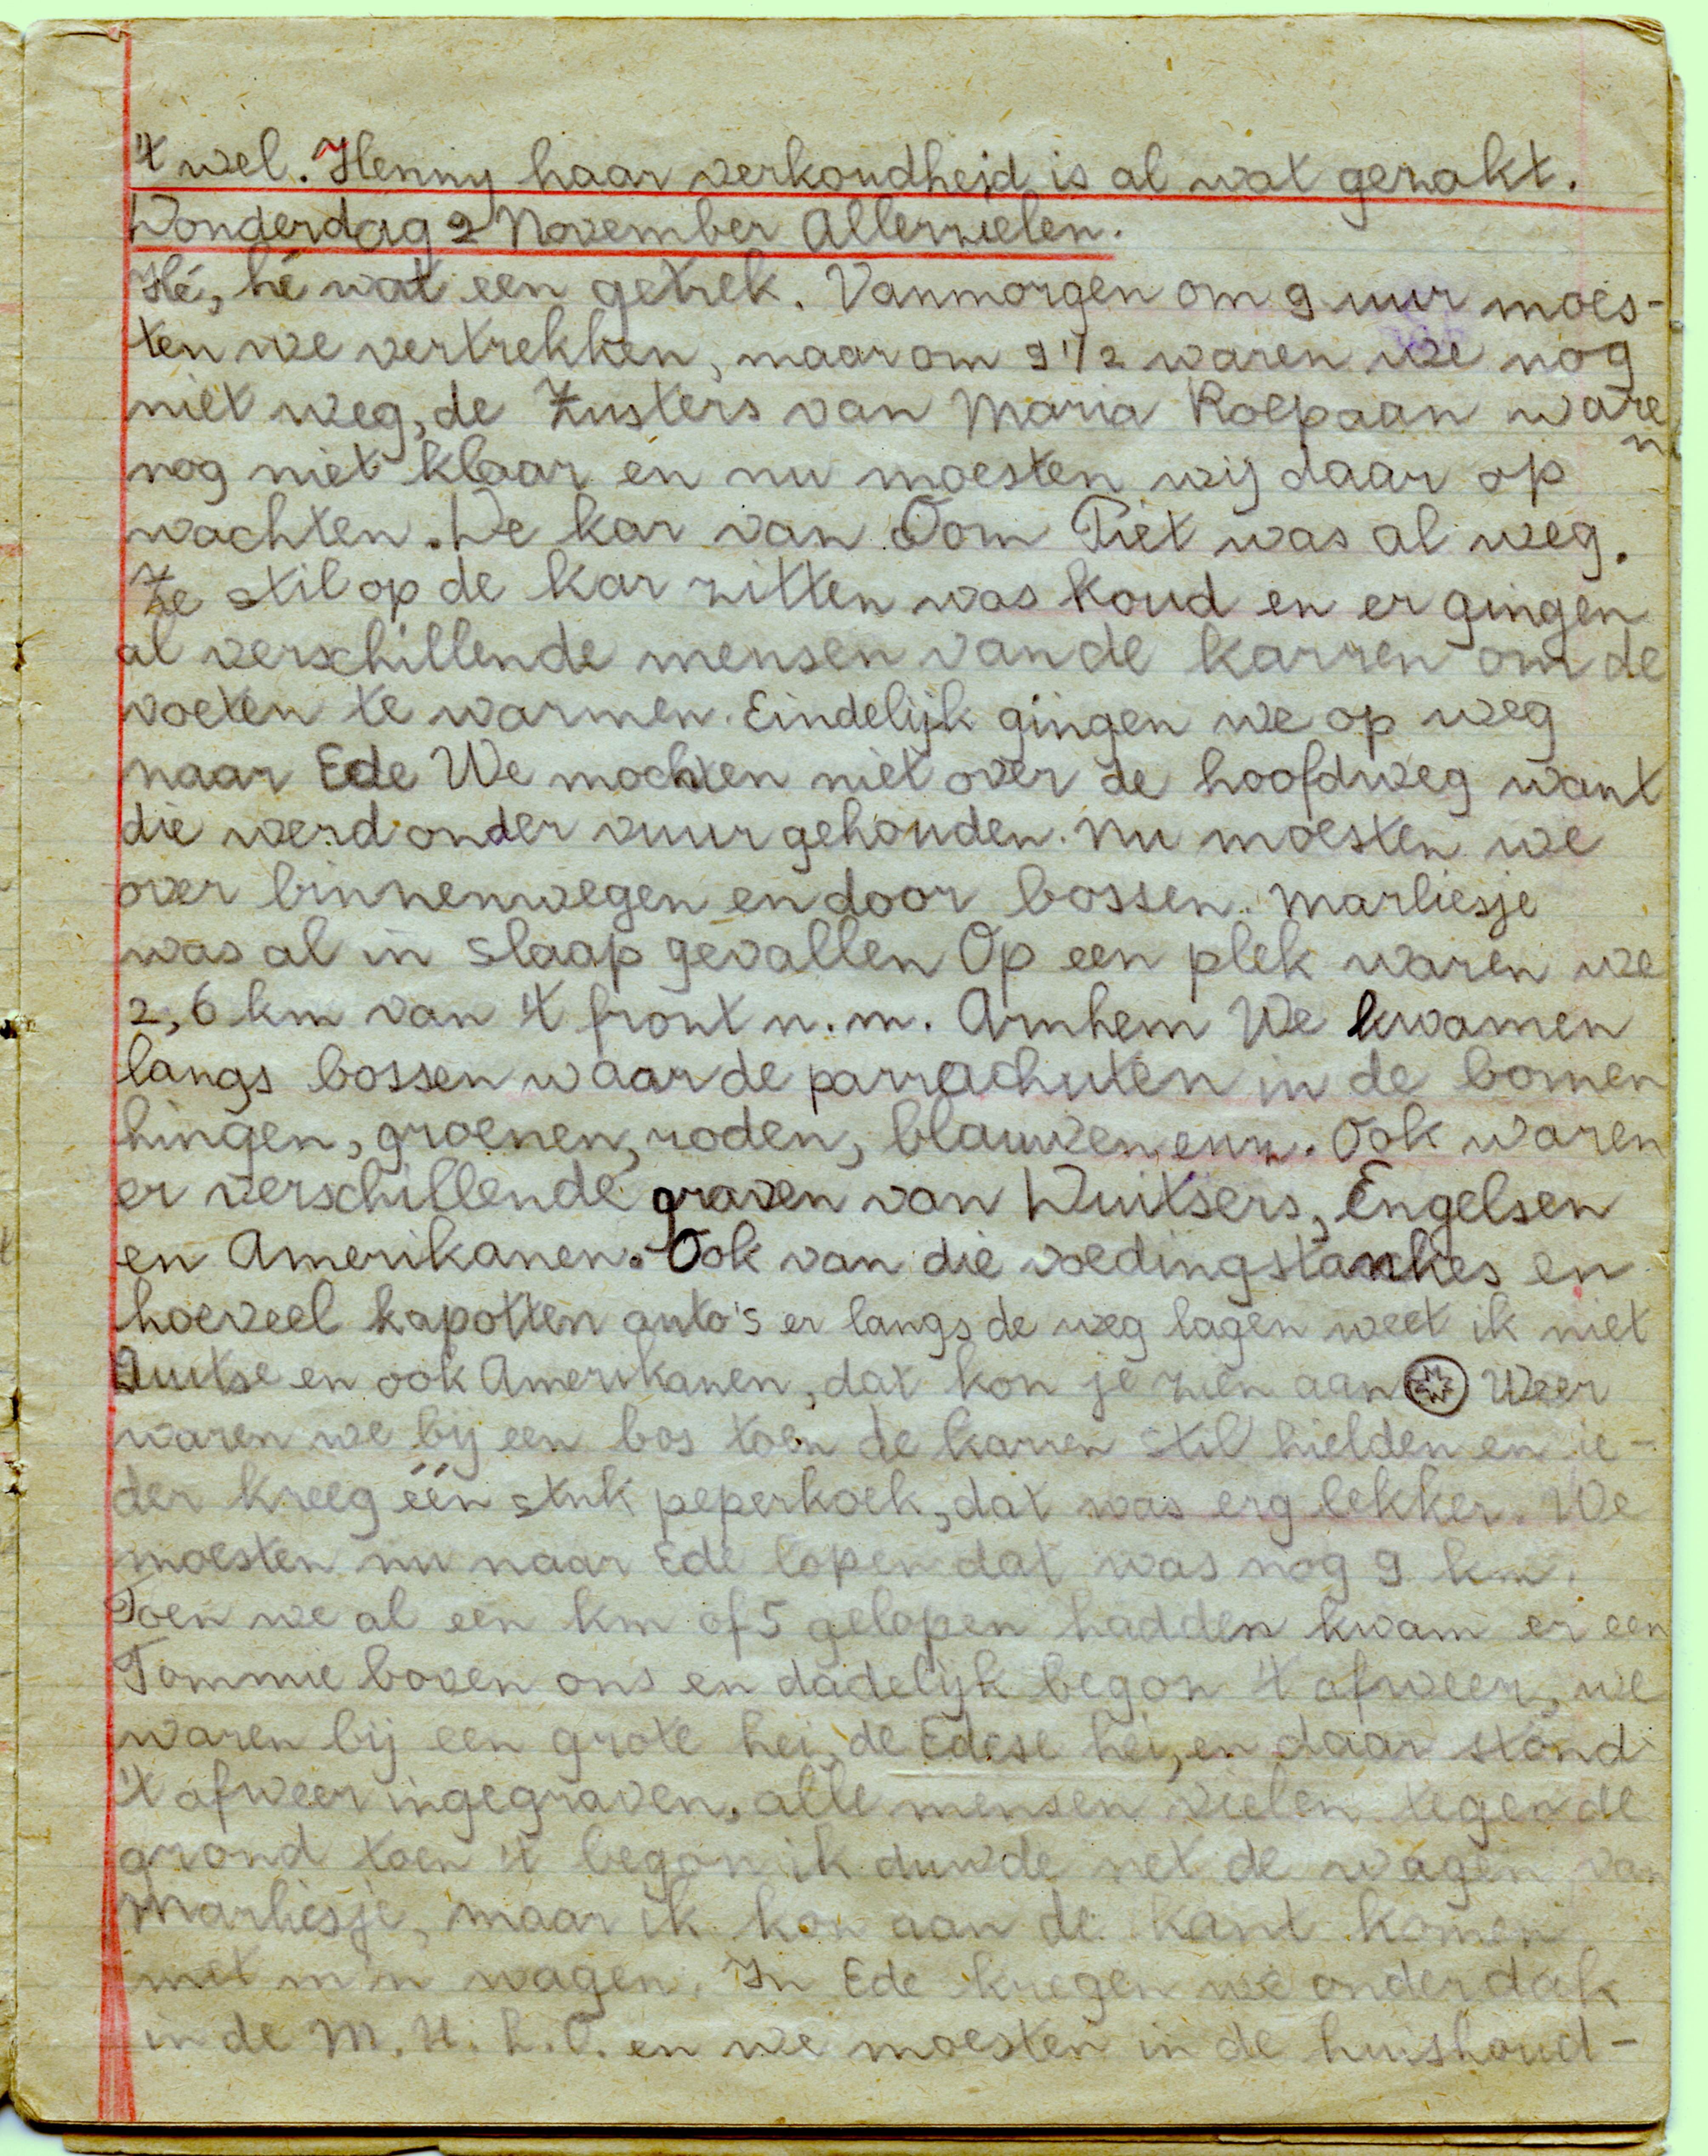 't wel. Henny haar verkoudheid is al wat gezakt.
Donderdag 2 November Allerzielen.
Hé, hé wat een getrek. Vanmorgen om 9 uur moes-
ten we vertrekken, maar om 9 1/2 waren we nog
niet weg, de Zusters van Maria Roepaan waren
nog niet klaar en nu moesten wij daar op
wachten. De kar van Oom Piet was al weg.
Ze stil op de kar zitten was koud en er gingen
al verschillende mensen van de karren om de
voeten te warmen. Eindelijk gingen we op weg
naar Ede We mochten niet over de hoofdweg want
die werd onder vuur gehouden. Nu moesten we
over binnenwegen en door bossen. Marliesje
was al in slaap gevallen Op een plek waren we
2,6 km van 't front n.m. Arnhem We kwamen
langs bossen waar de parrachuten in de bomen
hingen, groenen, roden, blauwen enz. Ook waren
er verschillende graven van Duitsers, Engelsen
en Amerikanen. Ook van die voedingstankes en
hoeveel kapotten auto's er langs de weg lagen weet ik niet
Duitse en ook Amerikanen, dat kon je zien aan Weer
waren we bij een bos toen de karren stil hielden en ie-
der kreeg één stuk peperkoek, dat was erg lekker. We
moesten nu naar Ede lopen dat was nog 9 km.
Toen we al een km of 5 gelopen hadden kwam er een
Tommie boven ons en dadelijk begon 't afweer, we
waren bij een grote hei, de Edese hei, en daar stond
't afweer ingegraven, alle mensen vielen tegen de
grond toen 't begon ik duwde net de wagen van
Marliesje, maar ik kon aan de kant komen
met m'n wagen. In Ede kregen we onderdak
in de M.U.L.O. en we moesten in de huishoud-